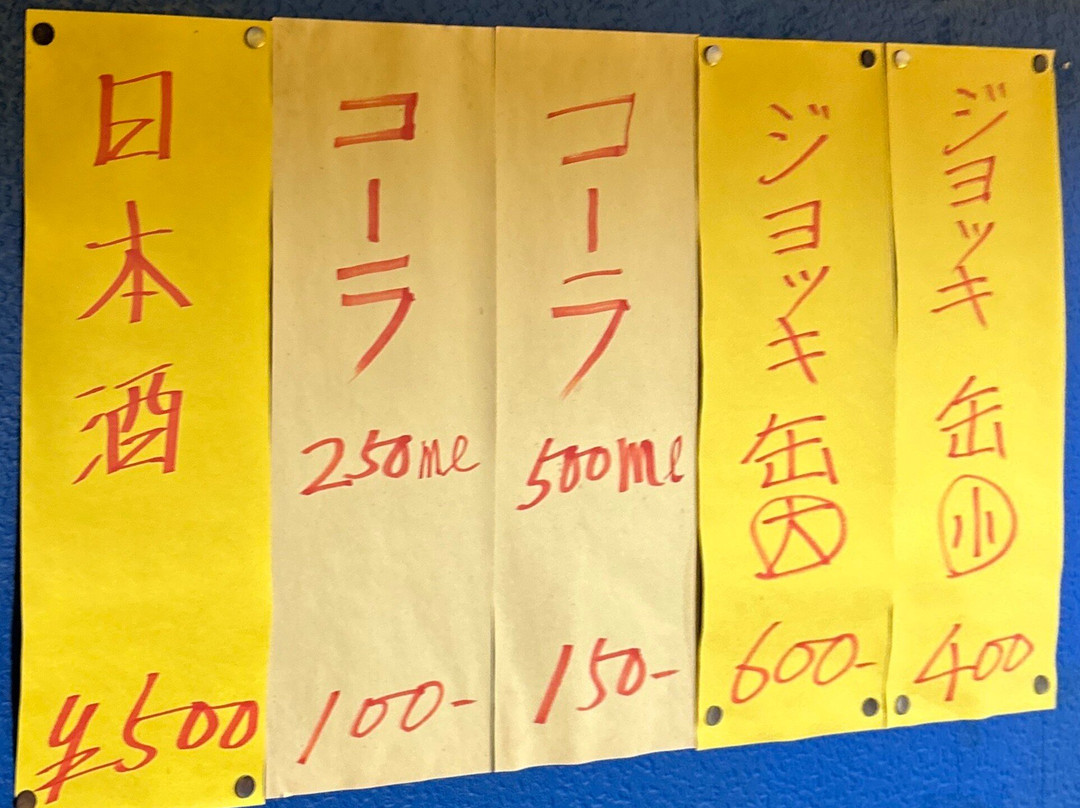 ジョッキ缶㊥小
400
ジョッキ缶大
600-
コーラ
500ml
150-
コーラ
250ml
100-
日本酒
¥500